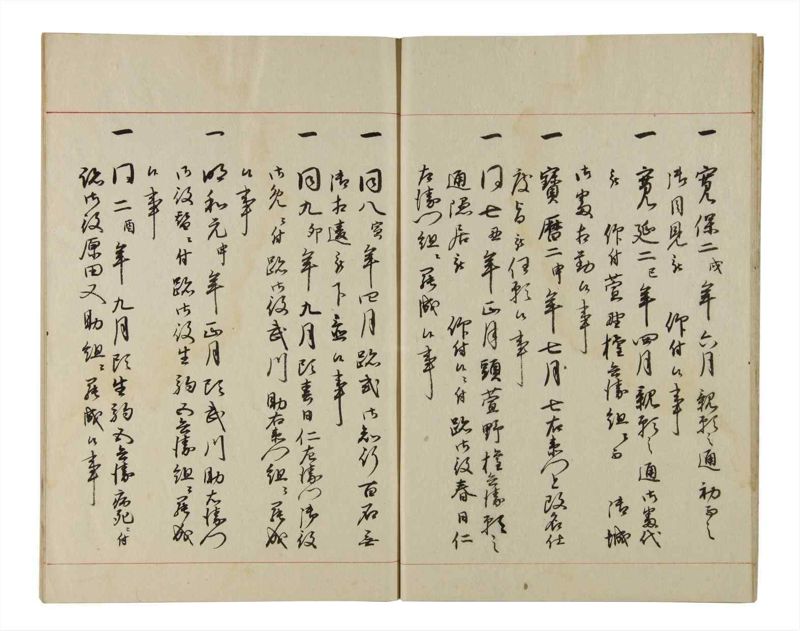 一 寛保二戌年六月親願之通初而之
御目見被 仰付候事
一 寛延二巳年四月親願之通御番代
被 仰付萱野権兵衛組ニ而 御城
御番相勤候事
一 寶暦二申年七月七右衛門と改名仕
度旨被任願候事
一 同七丑年正月頭萱野権兵衛願之
通隠居被 仰付候ニ付跡御役春日仁
左衛門組ニ罷成候事
一 同八寅年四月跡式御知行百石無
御相違被下置候事
一 同九卯年九月頭春日仁左衛門御役
御免ニ付跡御役武川助右衛門組ニ罷成
候事
一 明和元申年正月頭武川助右衛門
御役替ニ付跡御役生駒五兵衛組ニ罷成
候事
一 同二酉年九月頭生駒五兵衛病死ニ付
跡御役原田又助組ニ罷成候事